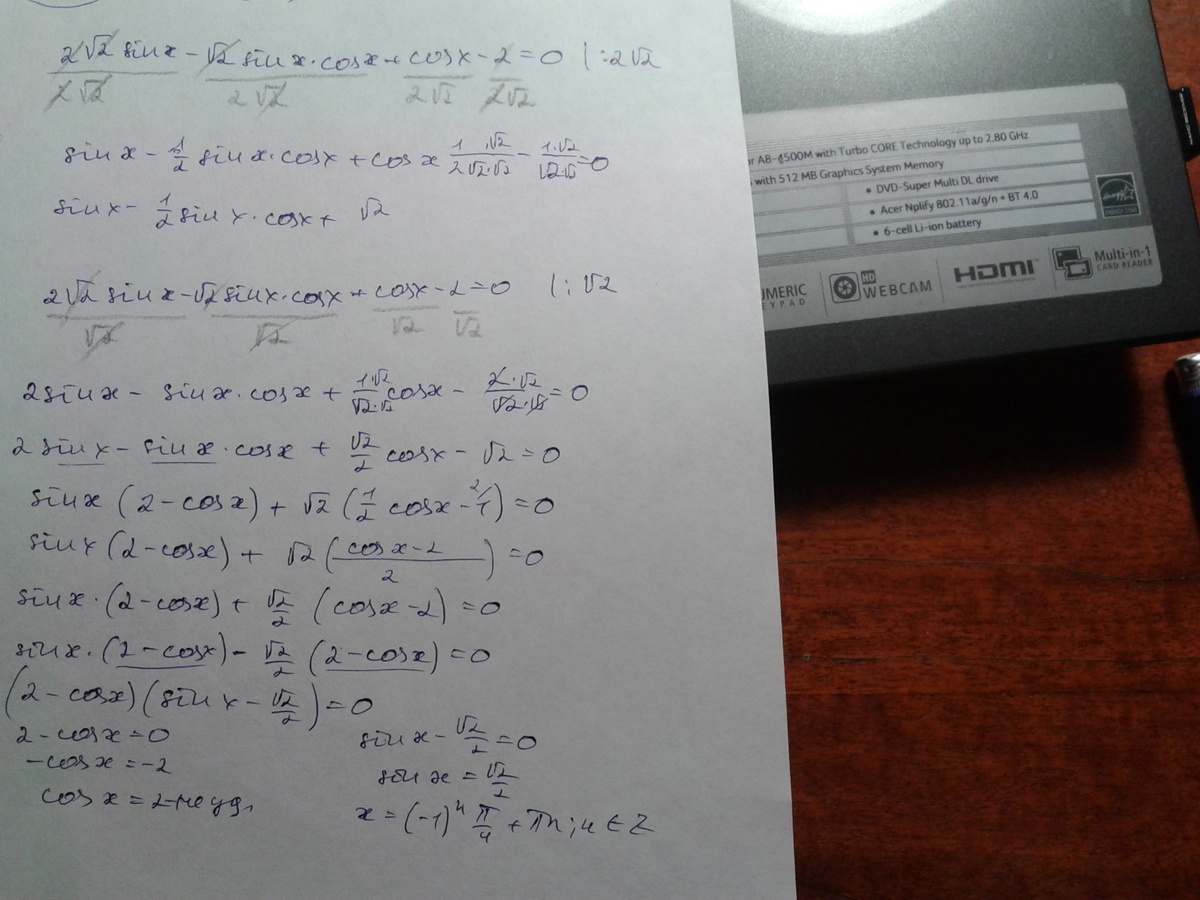 2√2 sin x - √2 sin x · cos x + cos x - 2 = 0 | : 2√2
2√2 2√2 2√2 2√2
sin x - 1/2 sin x · cos x + cos x 1·√2/2√2·√2 - 1·√2/√2·√2 = 0
sin x - 1/2 sin x · cos x + √2
2√2 sin x - √2 sin x · cos x + cos x - 2 = 0 | : √2
√2 √2 √2 √2
2 sin x - sin x · cos x + 1·√2/√2·√2 cos x - 2·√2/√2·√2 = 0
2 sin x - sin x · cos x + √2/2 cos x - √2 = 0
sin x (2 - cos x) + √2 (1/2 cos x - 2/1) = 0
sin x (2 - cos x) + √2 (cos x - 2 / 2) = 0
sin x · (2 - cos x) + √2/2 (cos x - 2) = 0
sin x · (2 - cos x) - √2/2 (2 - cos x) = 0
(2 - cos x)(sin x - √2/2) = 0
2 - cos x = 0
- cos x = -2
cos x = 2 - не удв,
sin x - √2/2 = 0
sin x = √2/2
x = (-1)ⁿ π/4 + πn; n ∈ Z
A8-4500M with Turbo CORE Technology up to 2.80 GHz
with 512 MB Graphics System Memory
• DVD-Super Multi DL drive
• Acer Nplify 802.11a/g/n + BT 4.0
• 6-cell Li-ion battery
HD WEBCAM
HDMI
Multi-in-1
CARD READER